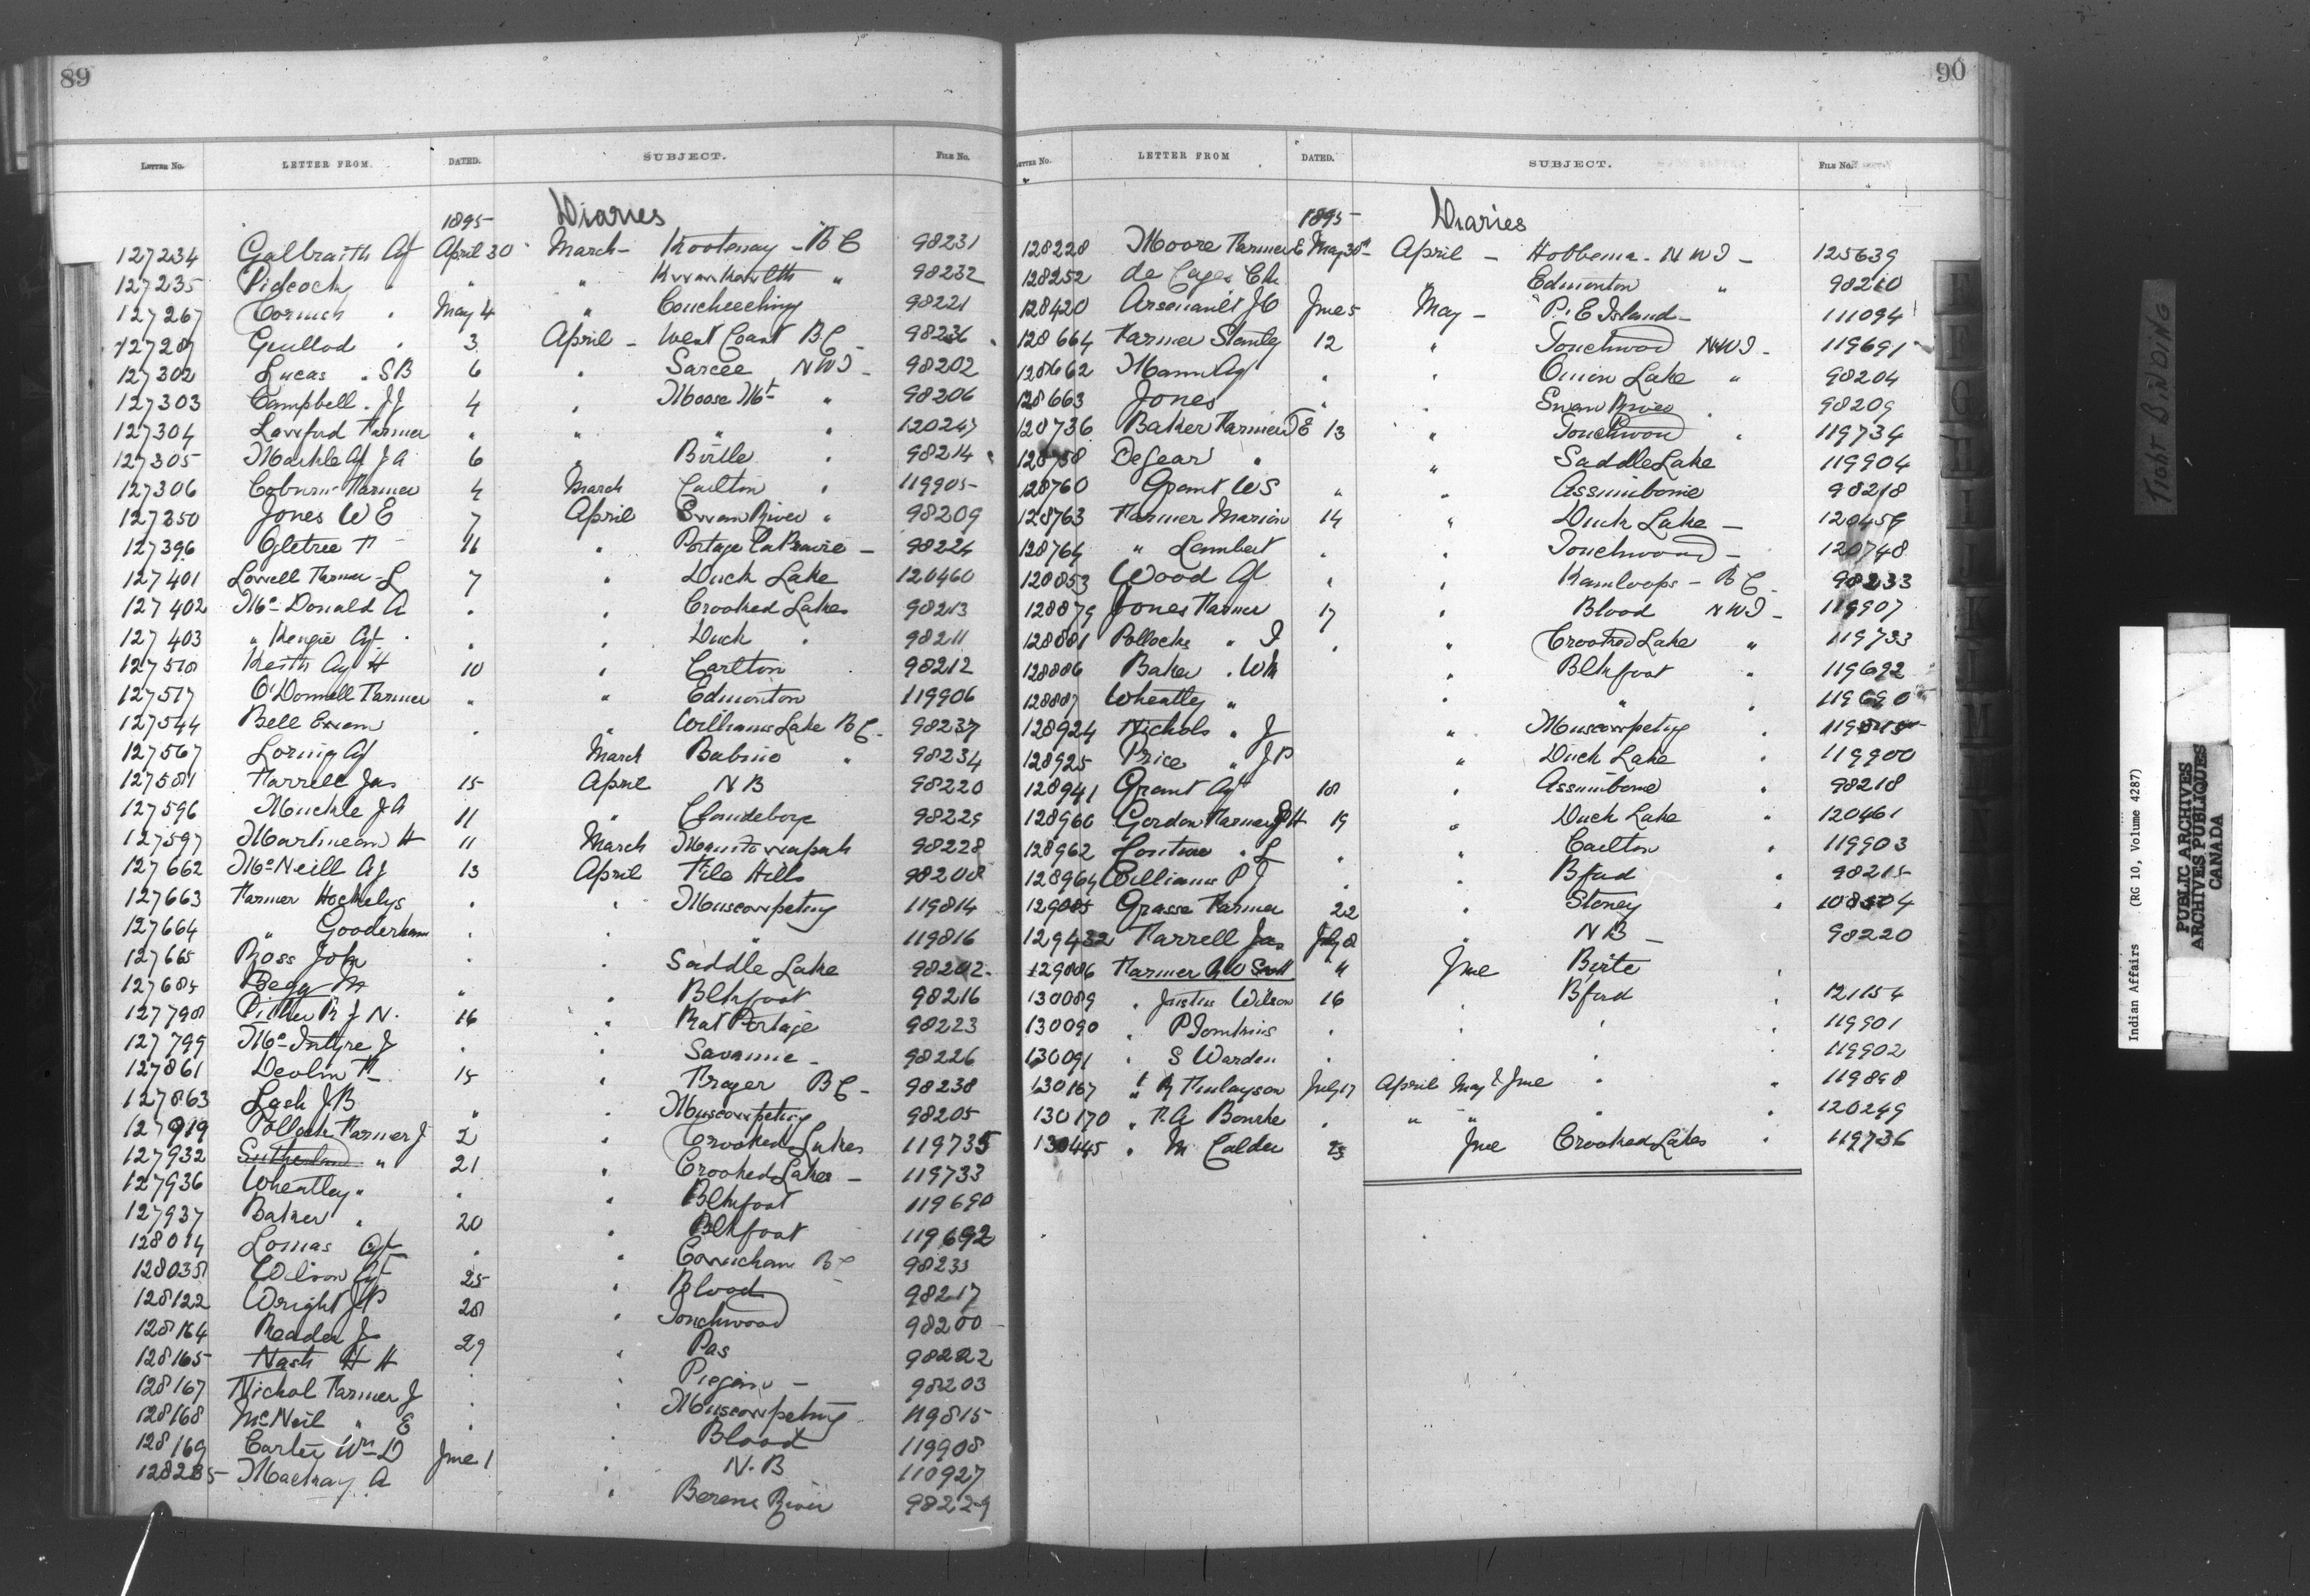 89
LETTER No. LETTER FROM. DATED. SUBJECT. FILE No.
1895 Diaries
127234 Galbraith Agt April 30 March - Kootenay - B C 98231
127235 Pidcock " " " Kwawkewlth " 98232
127267 Cornish " May 4 " Coucheeching 98221
127287 Guillod " 3 April - West Coast B.C. 98236
127302 Lucas " S B 6 " Sarcee N W T - 98202
127303 Campbell . J J 4 " Moose Mt " 98206
127304 Lawford Farmer " " " " 120247
127305 Markle Agt J A 6 " Birtle " 98214
127306 Coburn Farmer 4 March Carlton " 119905
127350 Jones W E 7 April Swan River " 98209
127396 Ogletree F 16 " Portage La Prairie - 98224
127401 Lovell Farmer L 7 " Duck Lake 120460
127402 Mc Donald A " " Crooked Lakes 98213
127403 " Kenzie Agt " " Duck " 98211
127518 Keith Agt H 10 " Carlton 98212
127517 O'Donnell Farmer " " Edmonton 119906
127544 Bell Ewen " " Williams Lake B C - 98237
127567 Loring Agt March Babine " 98234
127581 Farrell Jas 15 April N B 98220
127596 Muckle J A 11 " Clandeboye 98229
127597 Martineau H 11 March Manitowapah 98228
127662 Mc Neill Agt 13 April File Hills 98208
127663 Farmer Hockelys " " Muscowpetung 119814
127664 " Gooderham " " " 119816
127665 Ross John " " Saddle Lake 98202
127684 Begg M " " Blkfoot 98216
127798 Pither R J N. 16 " Rat Portage 98223
127799 Mc Intyre J " " Savanne - 98226
127861 Devlin F 15 " Frazer B C - 98238
127863 Lash J B " " Muscowpetung 98205
127919 Pollock Farmer J 2 " Crooked Lakes 119735
127932 Sutherland " 21 " Crooked Lakes - 119733
127936 Wheatley " " " Blkfoot 119690
127937 Baker " 20 " Blkfoot 119692
128014 Lomas Agt " " Cowichan B C 98235
128035 Wilson Agt 25 " Blood 98217
128122 Wright J P 28 " Touchwood 98200
128164 Reader J 29 " Pas 98222
128165 Nash H H " " Piegan - 98203
128167 Nichol Farmer J " " Muscowpetung 119815
128168 McNeil " E " " Blood 119908
128169 Carter Wm D June 1 " N. B 110927
128285 Mackay A " Berens River 98229
90
LETTER No. LETTER FROM DATED. SUBJECT. FILE No.
1895 Diaries
128228 Moore Farmer E May 30 April - Hobbema - N W T - 125639
128252 de Cazes Ch. " Edmonton " 98210
128420 Arsenault J O June 5 May - P. E Island - 111094
128664 Farmer Stanley 12 " Touchwood N W T - 119691
128662 Mann Agt " " Onion Lake " 98204
128663 Jones " " Swan River " 98209
128736 Baker Farmer E 13 " Touchwood " 119734
128758 Degear " " Saddle Lake 119904
128760 Grant W S " " Assiniboine 98218
128763 Farmer Marion 14 " Duck Lake - 120459
128764 " Lambert " " Touchwood - 120748
128853 Wood Agt " " Kamloops - B C - 98233
128879 Jones Farmer 17 " Blood N W T - 119907
128881 Pollocks " J " " Crooked Lake " 119733
128886 Baker " W M " Blkfoot " 119692
128887 Wheatley " " " " 119690
128924 Nichols " J " Muscowpetung " 119815
128925 Price " J P " Duck Lake " 119900
128941 Grant Agt 18 " Assiniboine " 98218
128960 Gordon Farmer H 19 " Duck Lake " 120461
128962 " L " " Carlton " 119903
128964 Williams P J " " Bford " 98215
129085 Grasse Farmer 22 " Stoney " 108504
129432 Farrell Jas July 8 " N B - 98220
129886 Farmer R W Scott " June Birtle "
130089 " Justus Wilson 16 " Bford " 121154
130090 " P Tomkins " " " " 119901
130091 " S Warden " " " 119902
130167 " R Finlayson July 17 April May & June " " 119898
130170 " F. A Bourke " " " " 120249
130445 " M Calder 23 June Crooked Lakes " 119736
F
G
H
I
K
L
M
TIGHT BINDING
Indian Affairs (RG 10, Volume 4287)
PUBLIC ARCHIVES
ARCHIVES PUBLIQUES
CANADA